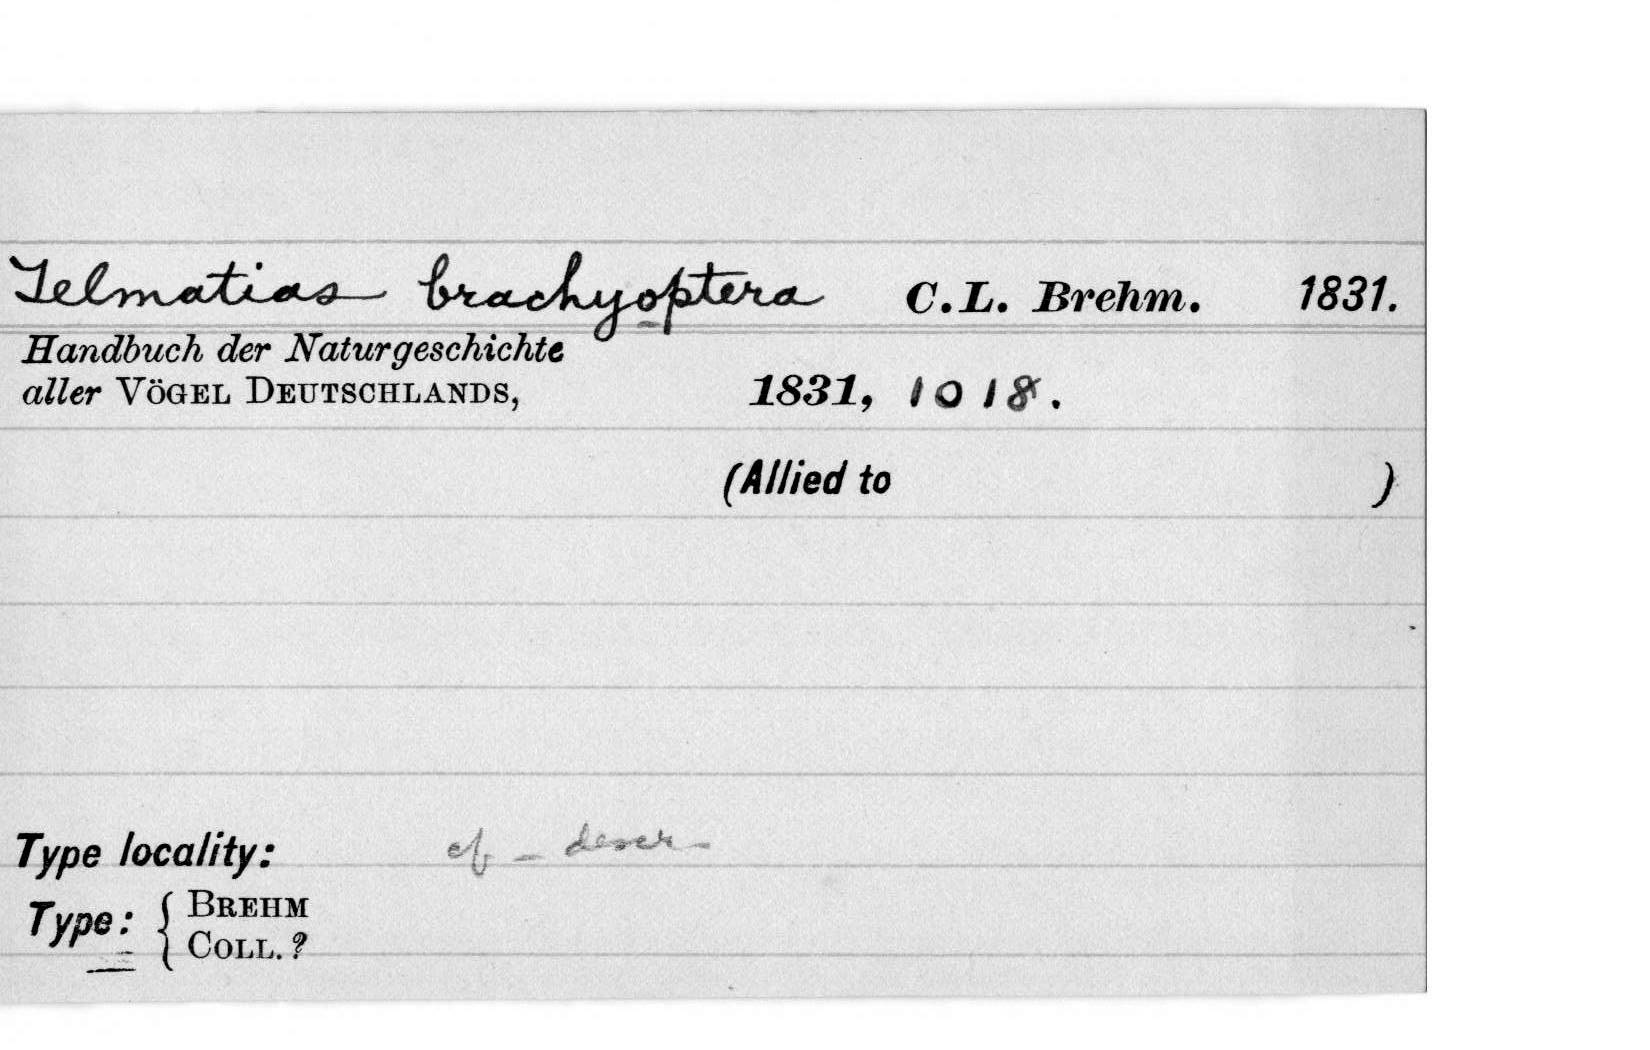 Telmatias brachyoptera C. L. Brehm. 1831.
Handbuch der Naturgeschichte
aller VÖGEL DEUTSCHLANDS, 1831, 1018.
(Allied to )
Type locality: cf - descr
Type: { BREHM
COLL. ?